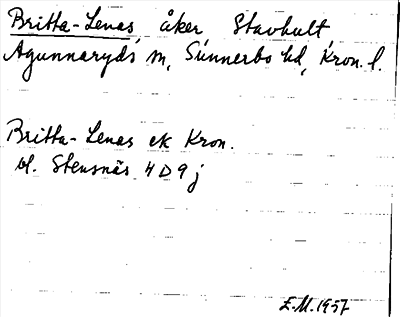 Britta-Lenas åker Stavhult
Agunnaryds sn, Sunnerbo hd, Kron. l.
Britta-Lenas ek Kron.
bl. Stensnäs 4D9j
E.M. 1957